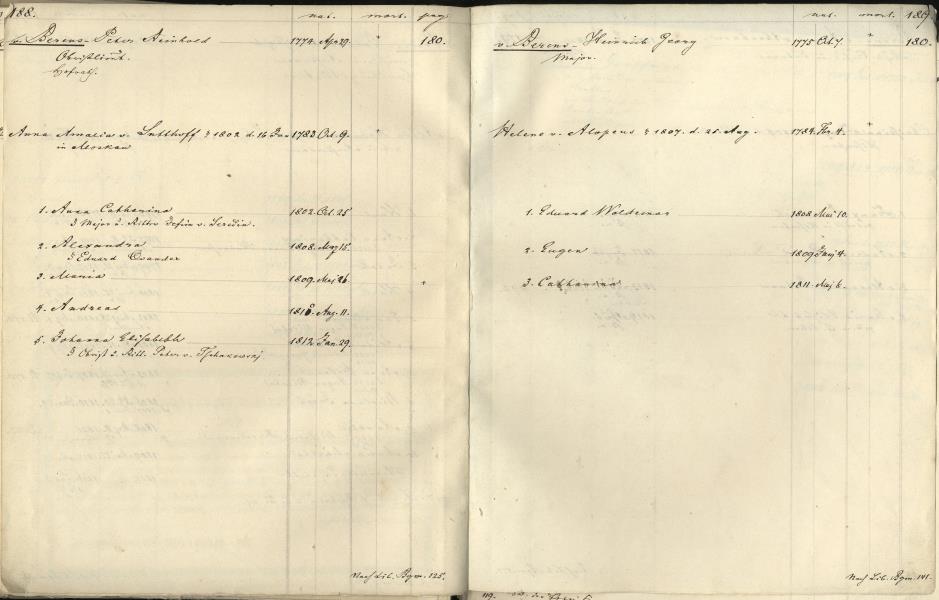 188. nat. mort. pag.
v. Berens - Peter Reinhold 1774. Apr. 29. + 180.
Obristlieut.
Hofrath.
Anna Amalia v. Sutthoff 1802 d. 16 Jan 1783. Oct. 9. +
in Moskau
1. Anna Catharina 1802. Oct. 25
Major u. Ritter Jefim v. Seredin.
2. Alexandra 1808. May 15.
Eduard Osander
3. Maria 1809. Maj 26. +
4. Andreas 1810. Aug. 11.
5. Johanna Elisabeth 1812. Jan. 29.
Obrist u. Ritt. Peter v.
Nach Lib. Bgm. 125.
nat. mort. 189
v. Berens - Heinrich Georg 1775. Oct. 7. + 180.
Major.
Helene v. Alopeus 1807. d. 25. Aug. 1784. 4. +
1. Eduard Woldemar 1808. Mai 10.
2. Eugen 1809. 4.
3. Catharina 1811. Maj 6.
Nach Lib. Bgm. 141.